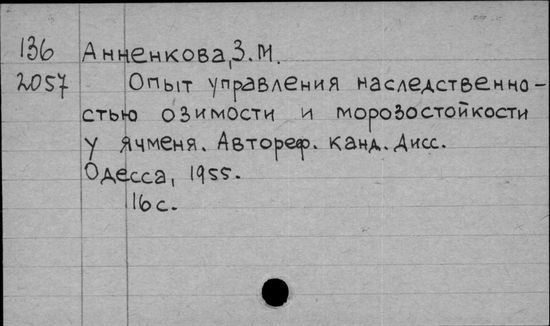 136 Анненкова, З.М.
2057 Опыт управления наследственно-
стью озимости и морозостойкости
у ячменя. Автореф. канд. дисс.
Одесса, 1955.
16 с.